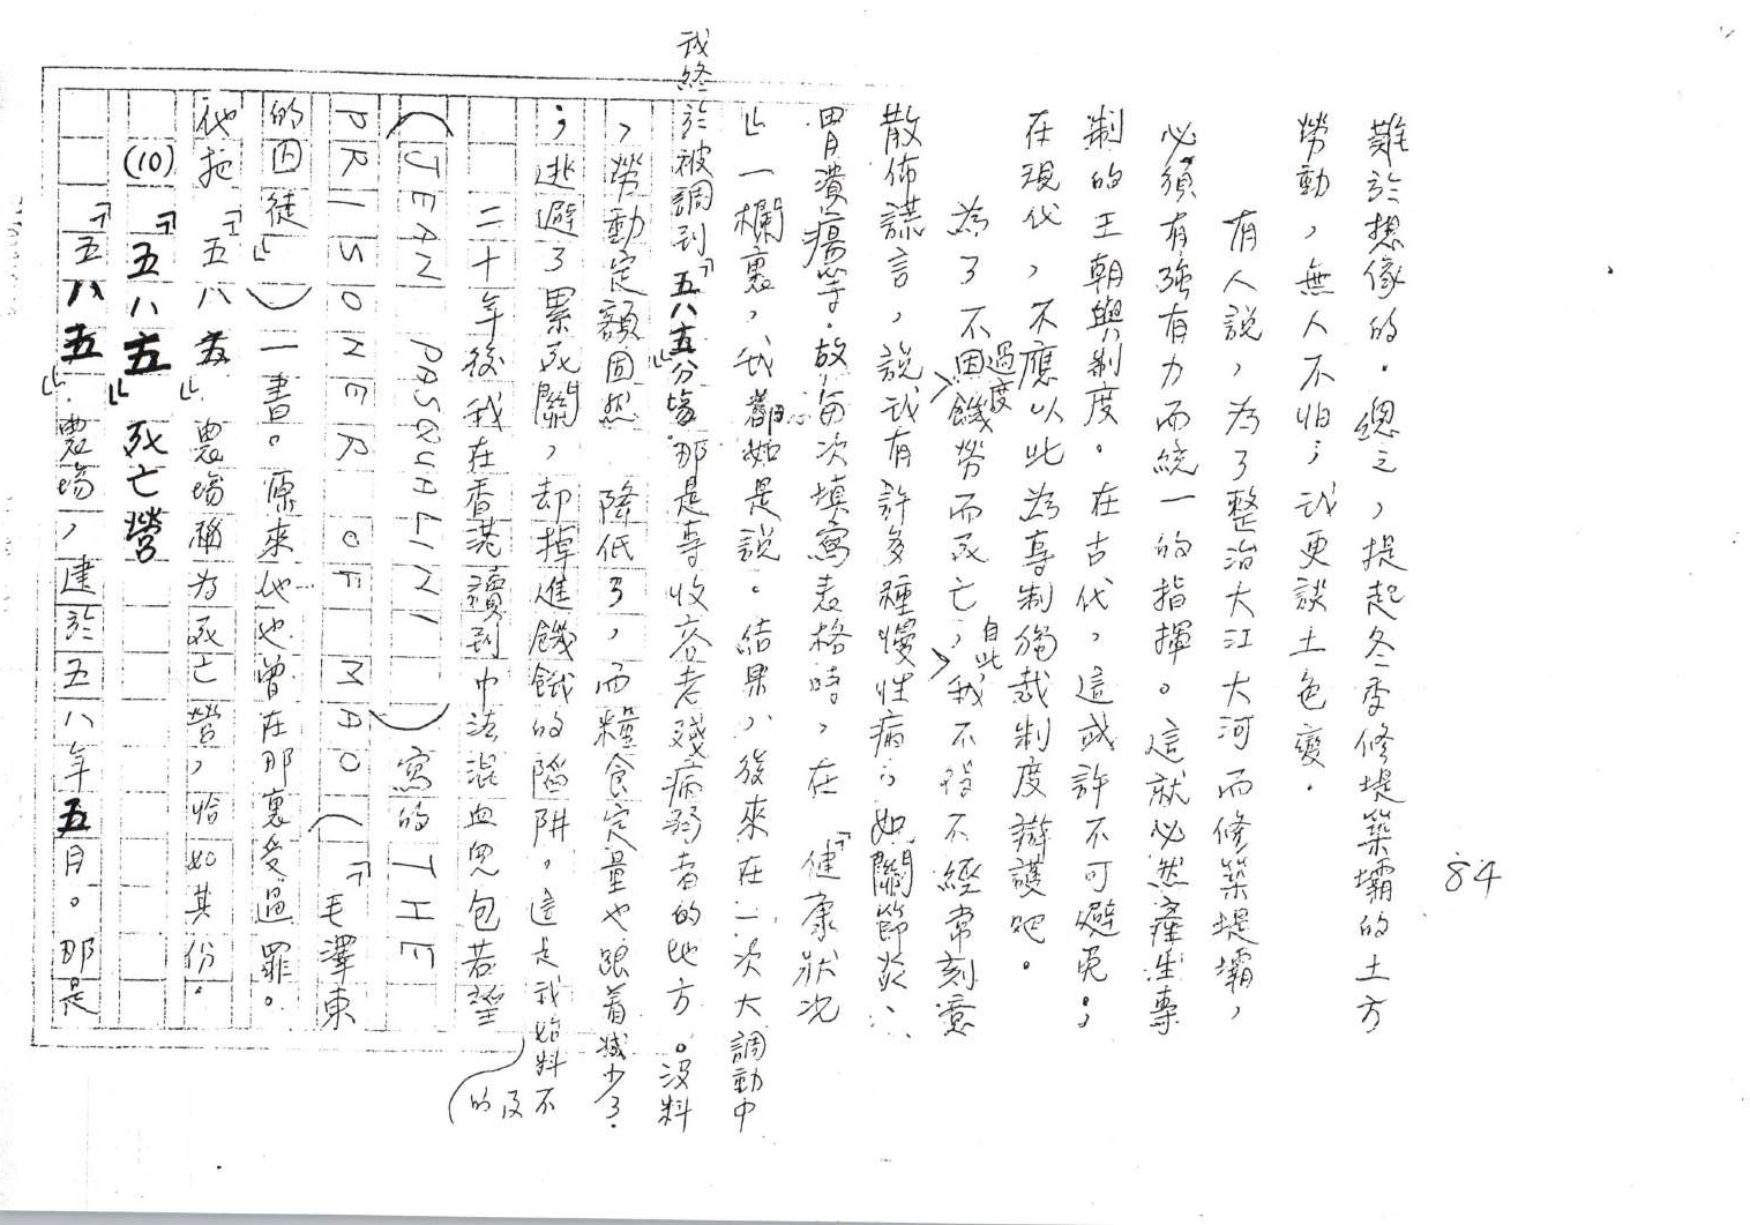 84
難於想像的。總之，提起冬季修堤築壩的土方
勞動，無人不怕；我更談土色變。
有人說，為了整治大江大河而修築堤壩，
必須有強有力而統一的指揮。這就必然産生專
制的王朝與制度。在古代，這或許不可避免；
在現代，不應以此為專制獨裁制度辯護吧。
為了不因過度饑勞而死亡，自此我不得不經常刻意
散佈謊言，說我有許多種慢性病；如關節炎、
胃潰瘍等。故每次填寫表格時，在『健康狀況
』一欄裏，我都如是說。結果，後來在一次大調動中
我終於被調到『五八五』分場。那是專收容老殘病弱者的地方。沒料
，勞動定額固然降低了，而糧食定量也跟着減少了。
；逃避了累死關，却掉進饑餓的陷阱。這是我始料不及的
二十年後我在香港讀到中法混血兒包若望
（JEAN PASQUALINI）寫的THE
PRISONER OF MAO（『毛澤東
的囚徒』）一書。原來他也曾在那裏受過罪。
他把『五八五』農場稱為死亡營，恰如其份。
(10)『五八五』死亡營
『五八五』農場，建於五八年五月。那是